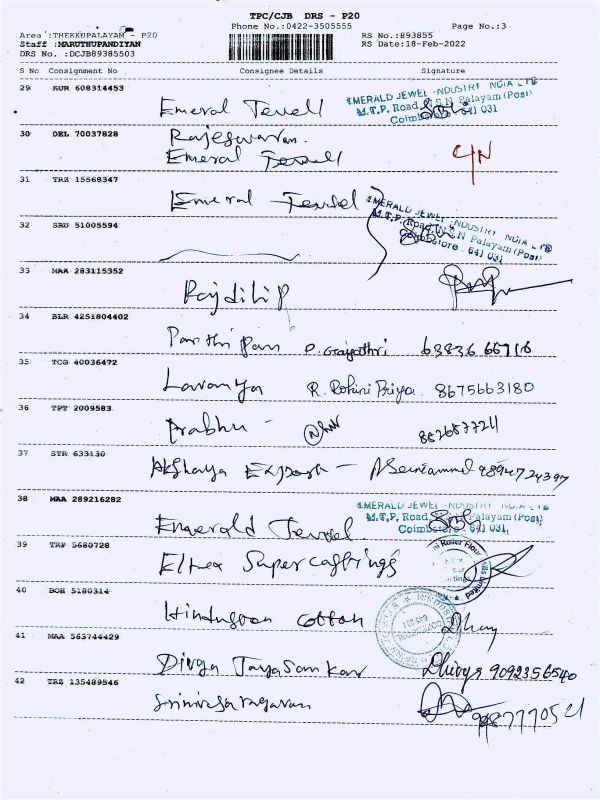 TPC/CJB DRS - P20
Phone No.:0422-3505555 Page No.:3
Area :THEKKUPALAYAM - P20 RS No.:893855
Staff :MARUTHUPANDIYAN RS Date:18-Feb-2022
DRS No. :DCJB89385503
S No Consignment No Consignee Details Signature
29 KUR 608314453
Emeral Jewell EMERALD JEWEL INDUSTRY INDIA LTD
M.T.P. Road, N.S.N Palayam (Post)
Coimbatore 641 031
30 DEL 70037828 Rajeswaran.
Emeral Jewell C/N
31 TRZ 15568347
Emeral Jewel EMERALD JEWEL INDUSTRY INDIA LTD
M.T.P. Road, N.S.N Palayam (Post)
Coimbatore 641 031
32 SRU 51005594
33 MAA 283115352
Rajdilip
34 BLR 4251804402
Parthipan P. Gayathri 63836 66716
35 TCG 40036472
Lavanya R. Rohini Priya. 8675663180
36 TPT 2009583
Prabhu -
37 STR 633130
Akshaya Export - 9894724397
38 MAA 289216282
Emerald Jewel EMERALD JEWEL INDUSTRY INDIA LTD
M.T.P. Road, Palayam (Post)
Coimbatore 641 031
39 TRP 5680728
Eltex Super castings
40 BOM 5180314
Hindustan cotton
41 MAA 563744429
Divya Jayasankar Dhivya 9092356540
42 TRZ 135489546
Srinivasaragavan